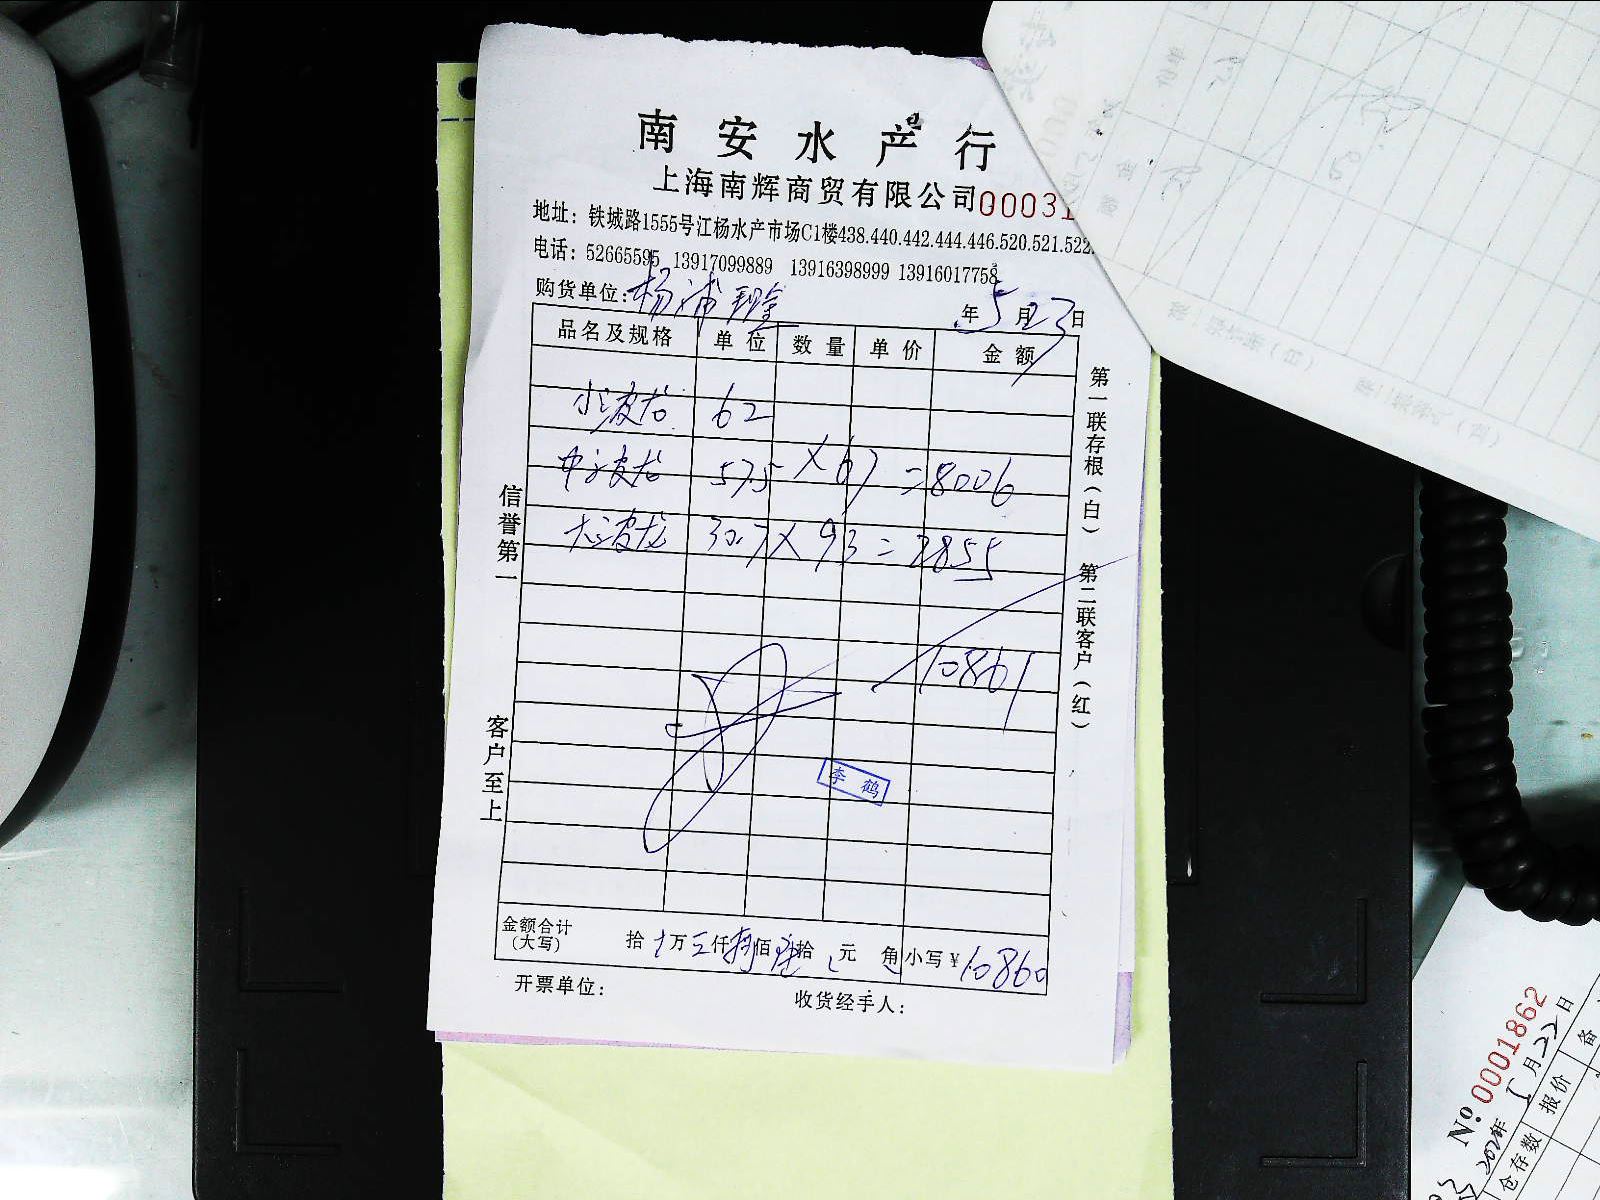 南安水产行
上海南辉商贸有限公司 00031
地址：铁城路1555号江杨水产市场C1楼438.440.442.444.446.520.521.522.
电话：52665595 13917099889 13916398999 13916017758
购货单位：杨浦 年5月23日
品名及规格 单位 数量 单价 金额
小波龙 62
中波龙 57.5 × 67 = 8006
大波龙 30.7 × 93 = 2855
10861
李鹤
金额合计（大写） 拾 万 仟 佰 拾 元 角 小写￥10860
开票单位： 收货经手人：
信誉第一 客户至上
第一联存根（白） 第二联客户（红）
№ 0001862
月22日
报价 备
仓存数